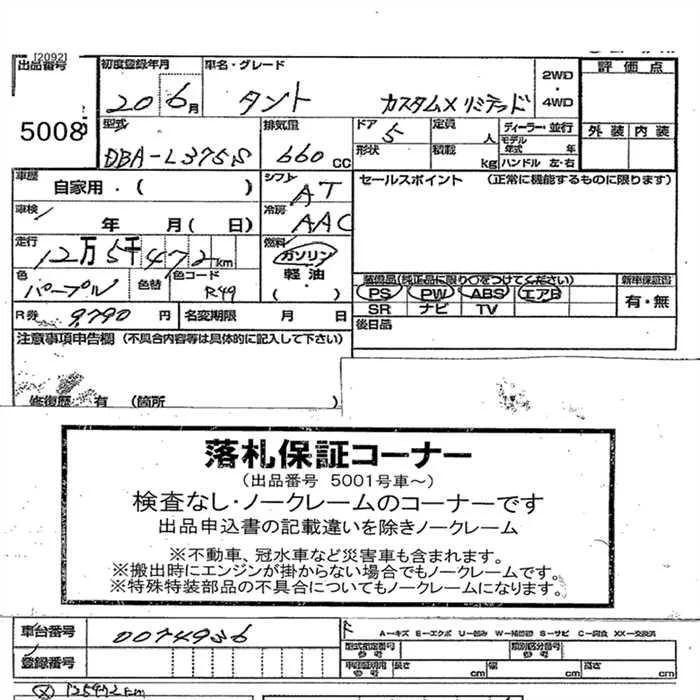 [2092]
出品番号 初度登録年月 車名・グレード 2WD・4WD 評価点
5008 20 6月 タント カスタムX リミテッド
型式 排気量 ドア 定員 人 ディーラー・並行 外装 内装
DBA-L375S 660cc 5 形状 積載 kg モデル年式 年 ハンドル 左・右
車歴 自家用・( ) シフト AT セールスポイント (正常に機能するものに限ります)
車検 年 月( 日) 冷房 AAC
走行 12万5千472km 燃料 ガソリン・軽油・( )
色 パープル 色替 色コード R49 装備品(純正品に限り○をつけてください) 新車保証書
PS PW ABS エアB 有・無
SR ナビ TV
R券 9,790円 名変期限 月 日 後日品
注意事項申告欄 (不具合内容等は具体的に記入して下さい)
修復歴 有 (箇所 )
落札保証コーナー
(出品番号 5001号車~)
検査なし・ノークレームのコーナーです
出品申込書の記載違いを除きノークレーム
※不動車、冠水車など災害車も含まれます。
※搬出時にエンジンが掛からない場合でもノークレームです。
※特殊特装部品の不具合についてもノークレームになります。
車台番号 0074936 A-キズ E-エクボ U-凹み W-補修跡 S-サビ C-腐食 XX-交換済
型式指定番号 参考 類別区分番号 参考
登録番号 車検証明用 参考 長さ cm 幅 cm 高さ cm
125472km